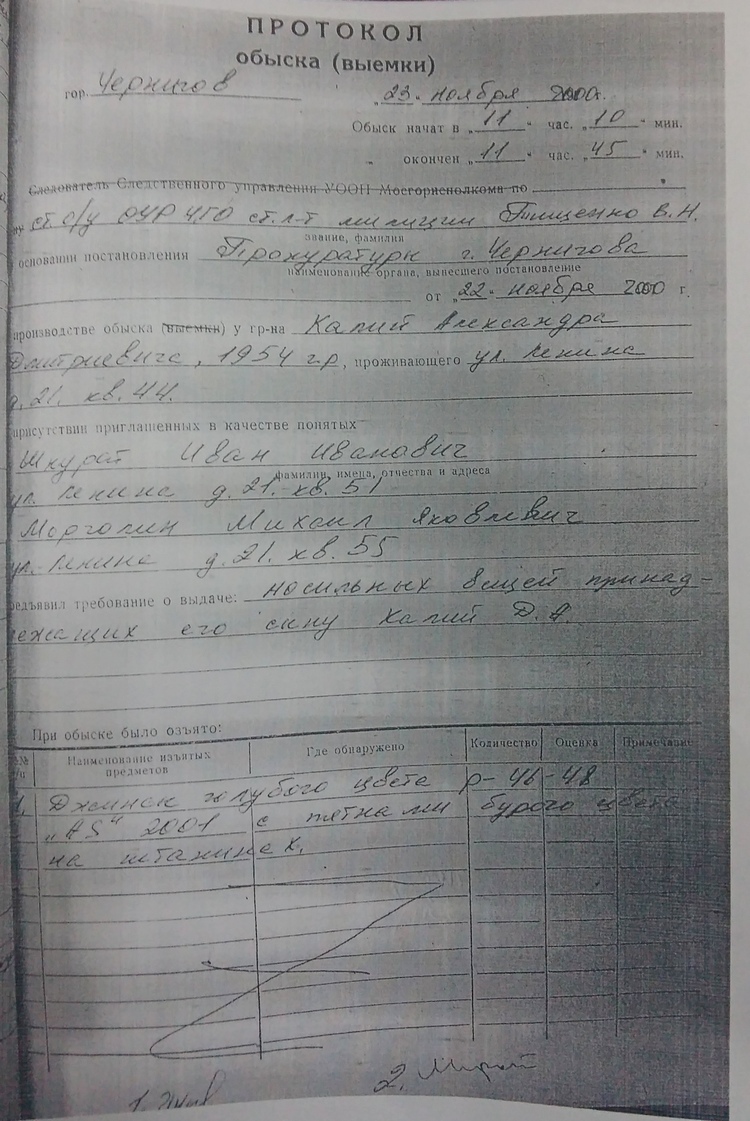 ПРОТОКОЛ
обыска (выемки)
гор. Чернигов
„23“ ноября 2000г.
Обыск начат в „11“ час. „10“ мин.
„ окончен „11“ час. „45“ мин.
Следователь Следственного управления УООП Мосгорисполкома по
ст. о/у ОУР ЧГО ст. л-т милиции Тищенко В.Н.
звание, фамилия
основании постановления Прокуратуры г. Чернигова
наименование органа, вынесшего постановление
от „22“ ноября 2000 г.
производстве обыска (выемки) у гр-на Капий Александра
Дмитриевича, 1954 г.р, проживающего ул. Ленина
д. 21. кв. 44.
присутствии приглашенных в качестве понятых
Шкурат Иван Иванович
фамилии, имена, отчества и адреса
ул. Ленина д. 21. кв. 51
Марголин Михаил Яковлевич
ул. Ленина д. 21. кв. 55
редъявил требование о выдаче: носильных вещей принад-
лежащих его сыну Капий Д.А.
При обыске было озъято:
Наименование изъятых предметов Где обнаружено Количество Оценка Примечание
1. Джинсы голубого цвета р-46-48
„AS“ 2001 с пятнами бурого цвета
на штанинах.
2.